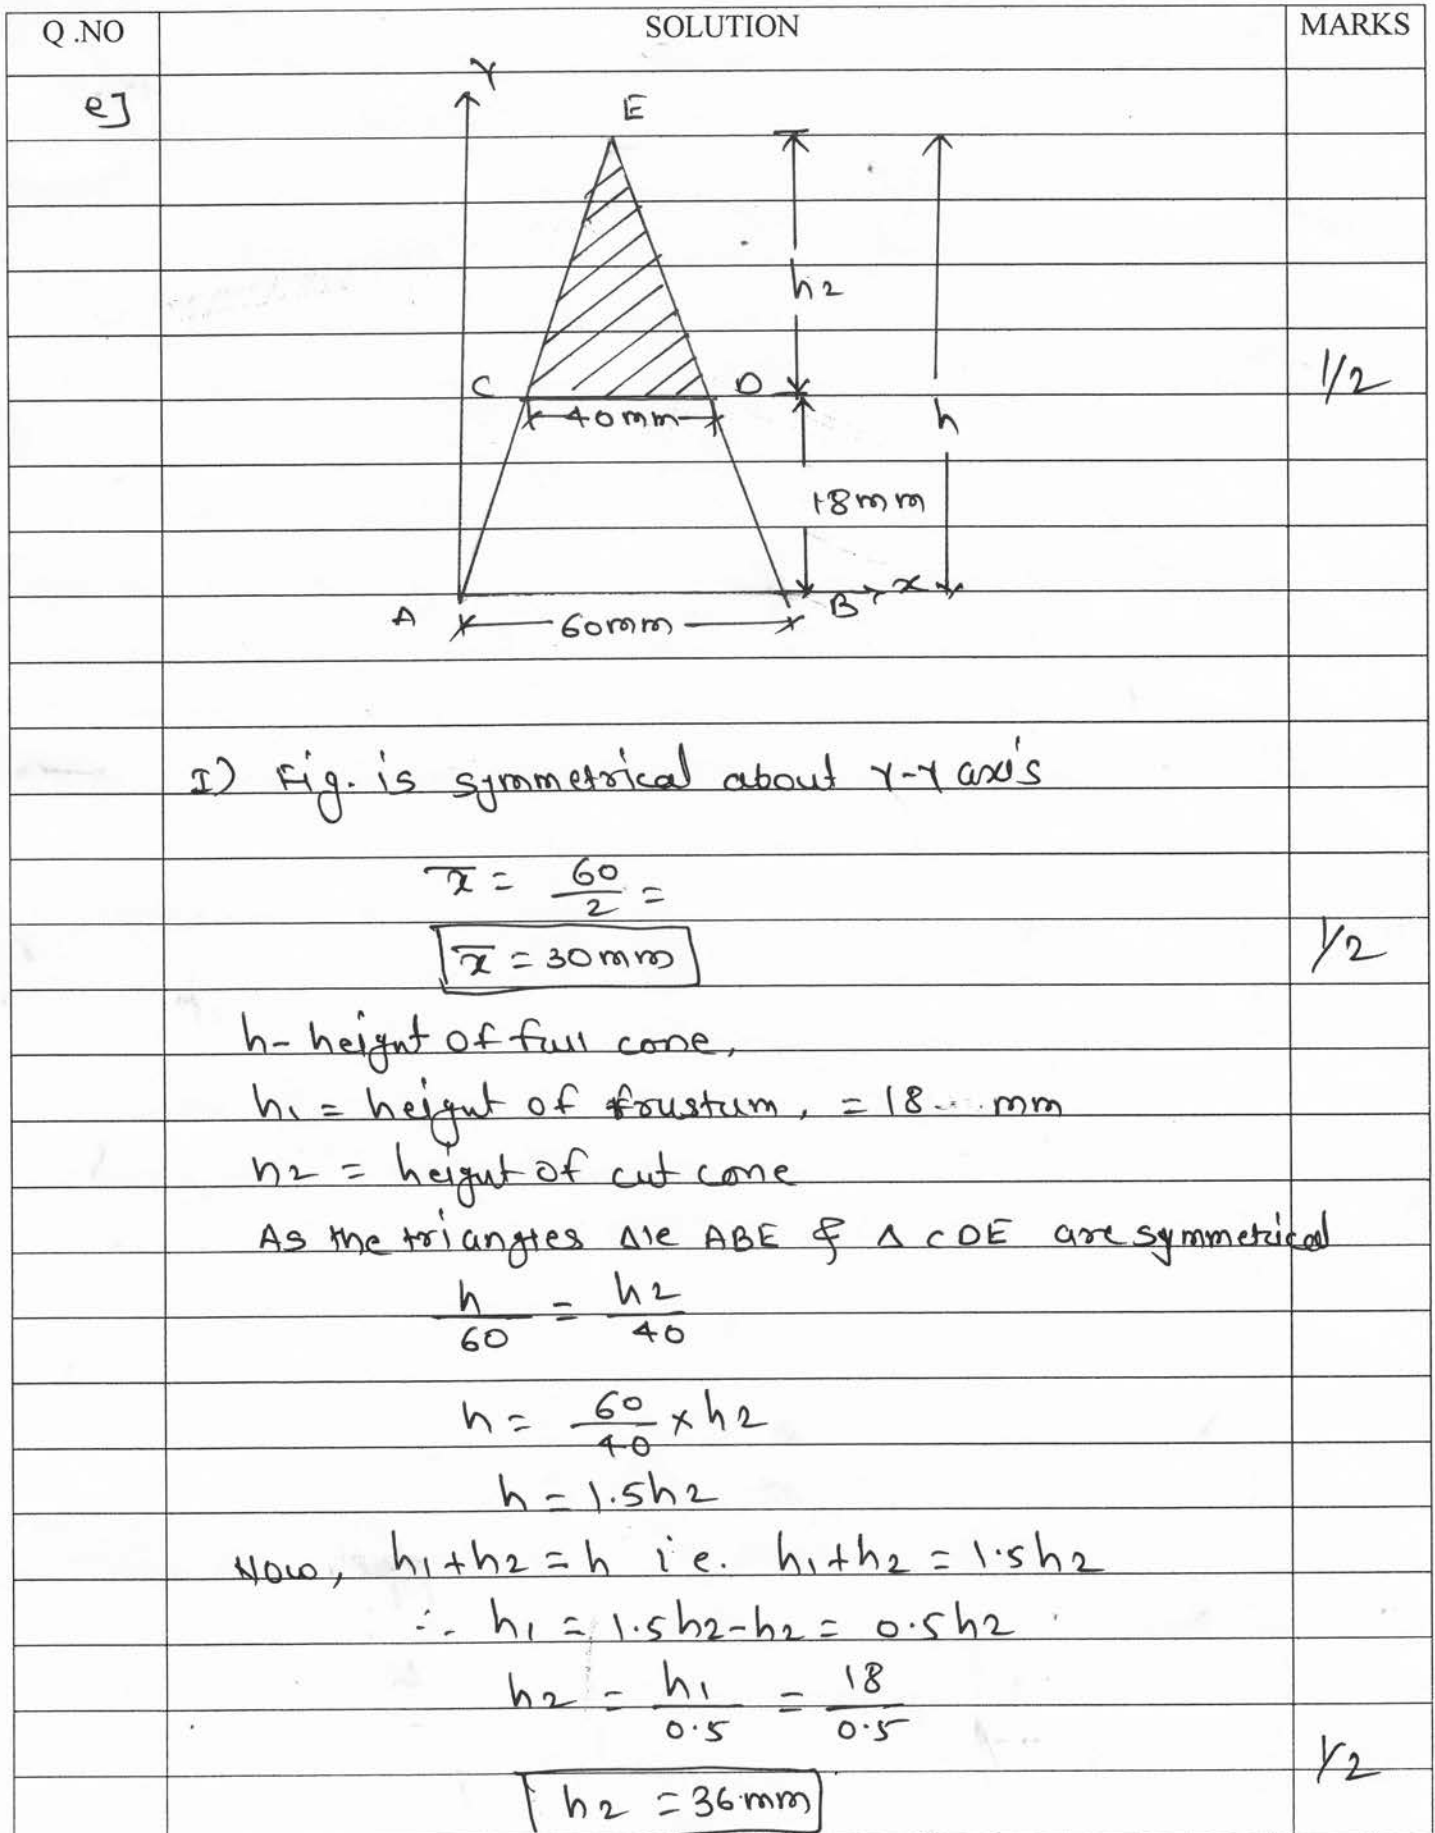 Q .NO SOLUTION MARKS
e]
Y
E
h2
C D
1/2
40mm
h
18mm
A B x
60mm
I) Fig. is symmetrical about Y-Y axis
x̄ = 60/2 =
x̄ = 30mm 1/2
h- height of full cone,
h1 = height of frustum, = 18 mm
h2 = height of cut cone
As the triangles Δle ABE & Δ CDE are symmetrical
h/60 = h2/40
h = 60/40 × h2
h = 1.5h2
Now, h1+h2 = h i.e. h1+h2 = 1.5h2
∴ h1 = 1.5h2-h2 = 0.5h2
h2 = h1/0.5 = 18/0.5
1/2
h2 = 36mm